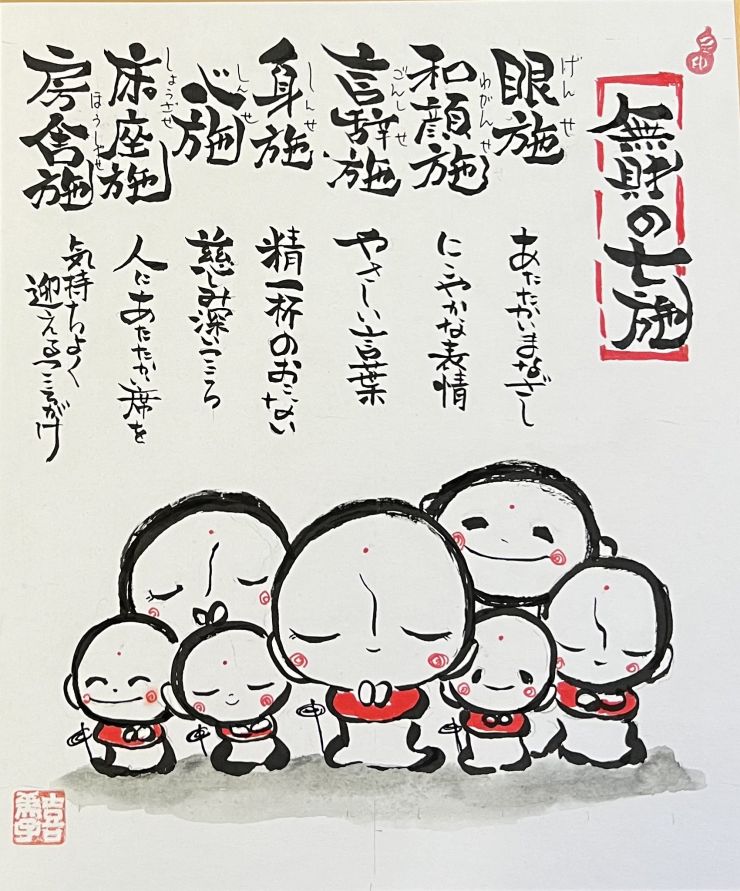 無財の七施
眼施
げんせ
あたたかいまなざし
和顔施
わがんせ
にこやかな表情
言辞施
ごんじせ
やさしい言葉
身施
しんせ
精一杯のおこない
心施
しんせ
慈しみ深いこころ
床座施
しょうざせ
人にあたたかい席を
房舎施
ほうしゃせ
気持ちよく
迎えるこころがけ